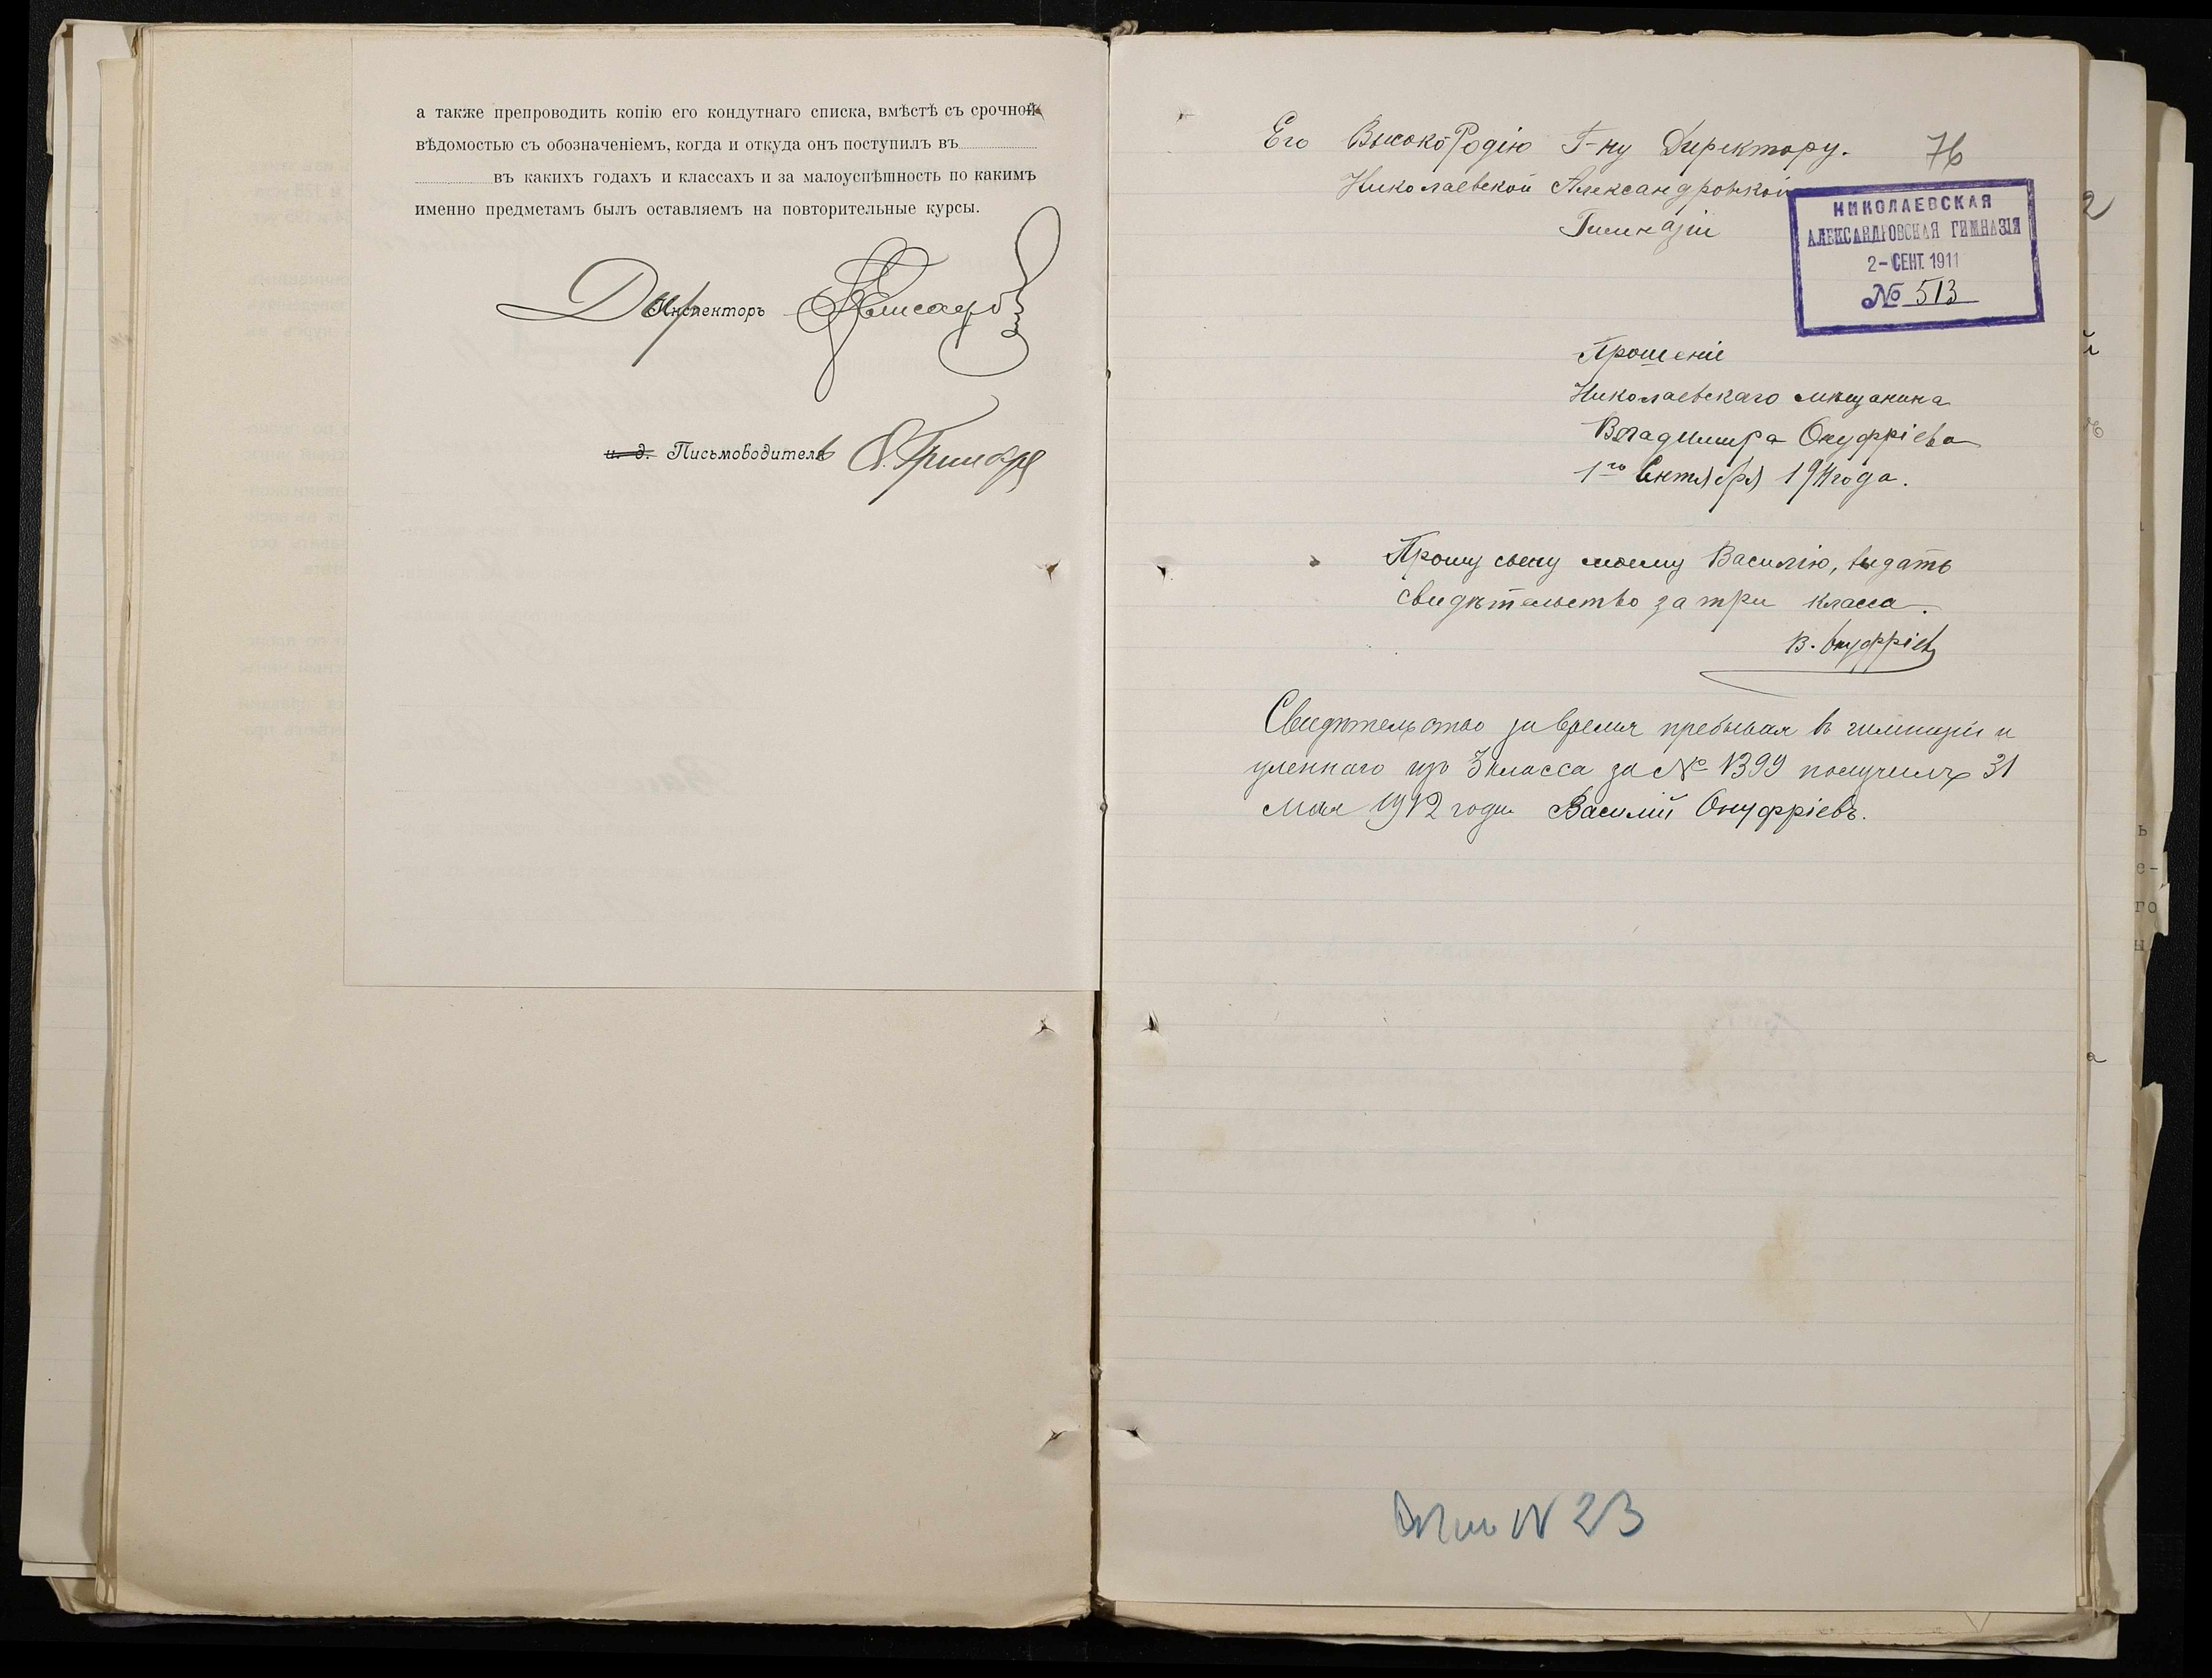 а также препроводить копію его кондутнаго списка, вмѣстѣ съ срочной
вѣдомостью съ обозначеніемъ, когда и откуда онъ поступилъ въ
въ какихъ годахъ и классахъ и за малоуспѣшность по какимъ
именно предметамъ былъ оставляемъ на повторительные курсы.
Дир Инспекторъ
и. д. Письмоводитель
Его ВысокоРодію Г-ну Директору.
76
Николаевской Александровкой
Гимназіи
НИКОЛАЕВСКАЯ
АЛЕКСАНДРОВСКАЯ ГИМНАЗІЯ
2 - СЕНТ. 1911
№ 513
Прошеніе
Николаевскаго мѣщанина
Владимира Онуфріева
1го Сентября 1911 года.
Прошу сыну моему Василію, выдать
свидѣтельство за три класса.
В. Онуфріевъ
Свидѣтельство за время пребывая въ гимназіи и
уленнаго изъ 3 класса за № 1399 получилъ 31
мая 1912 года Василій Онуфріевъ.
N 23